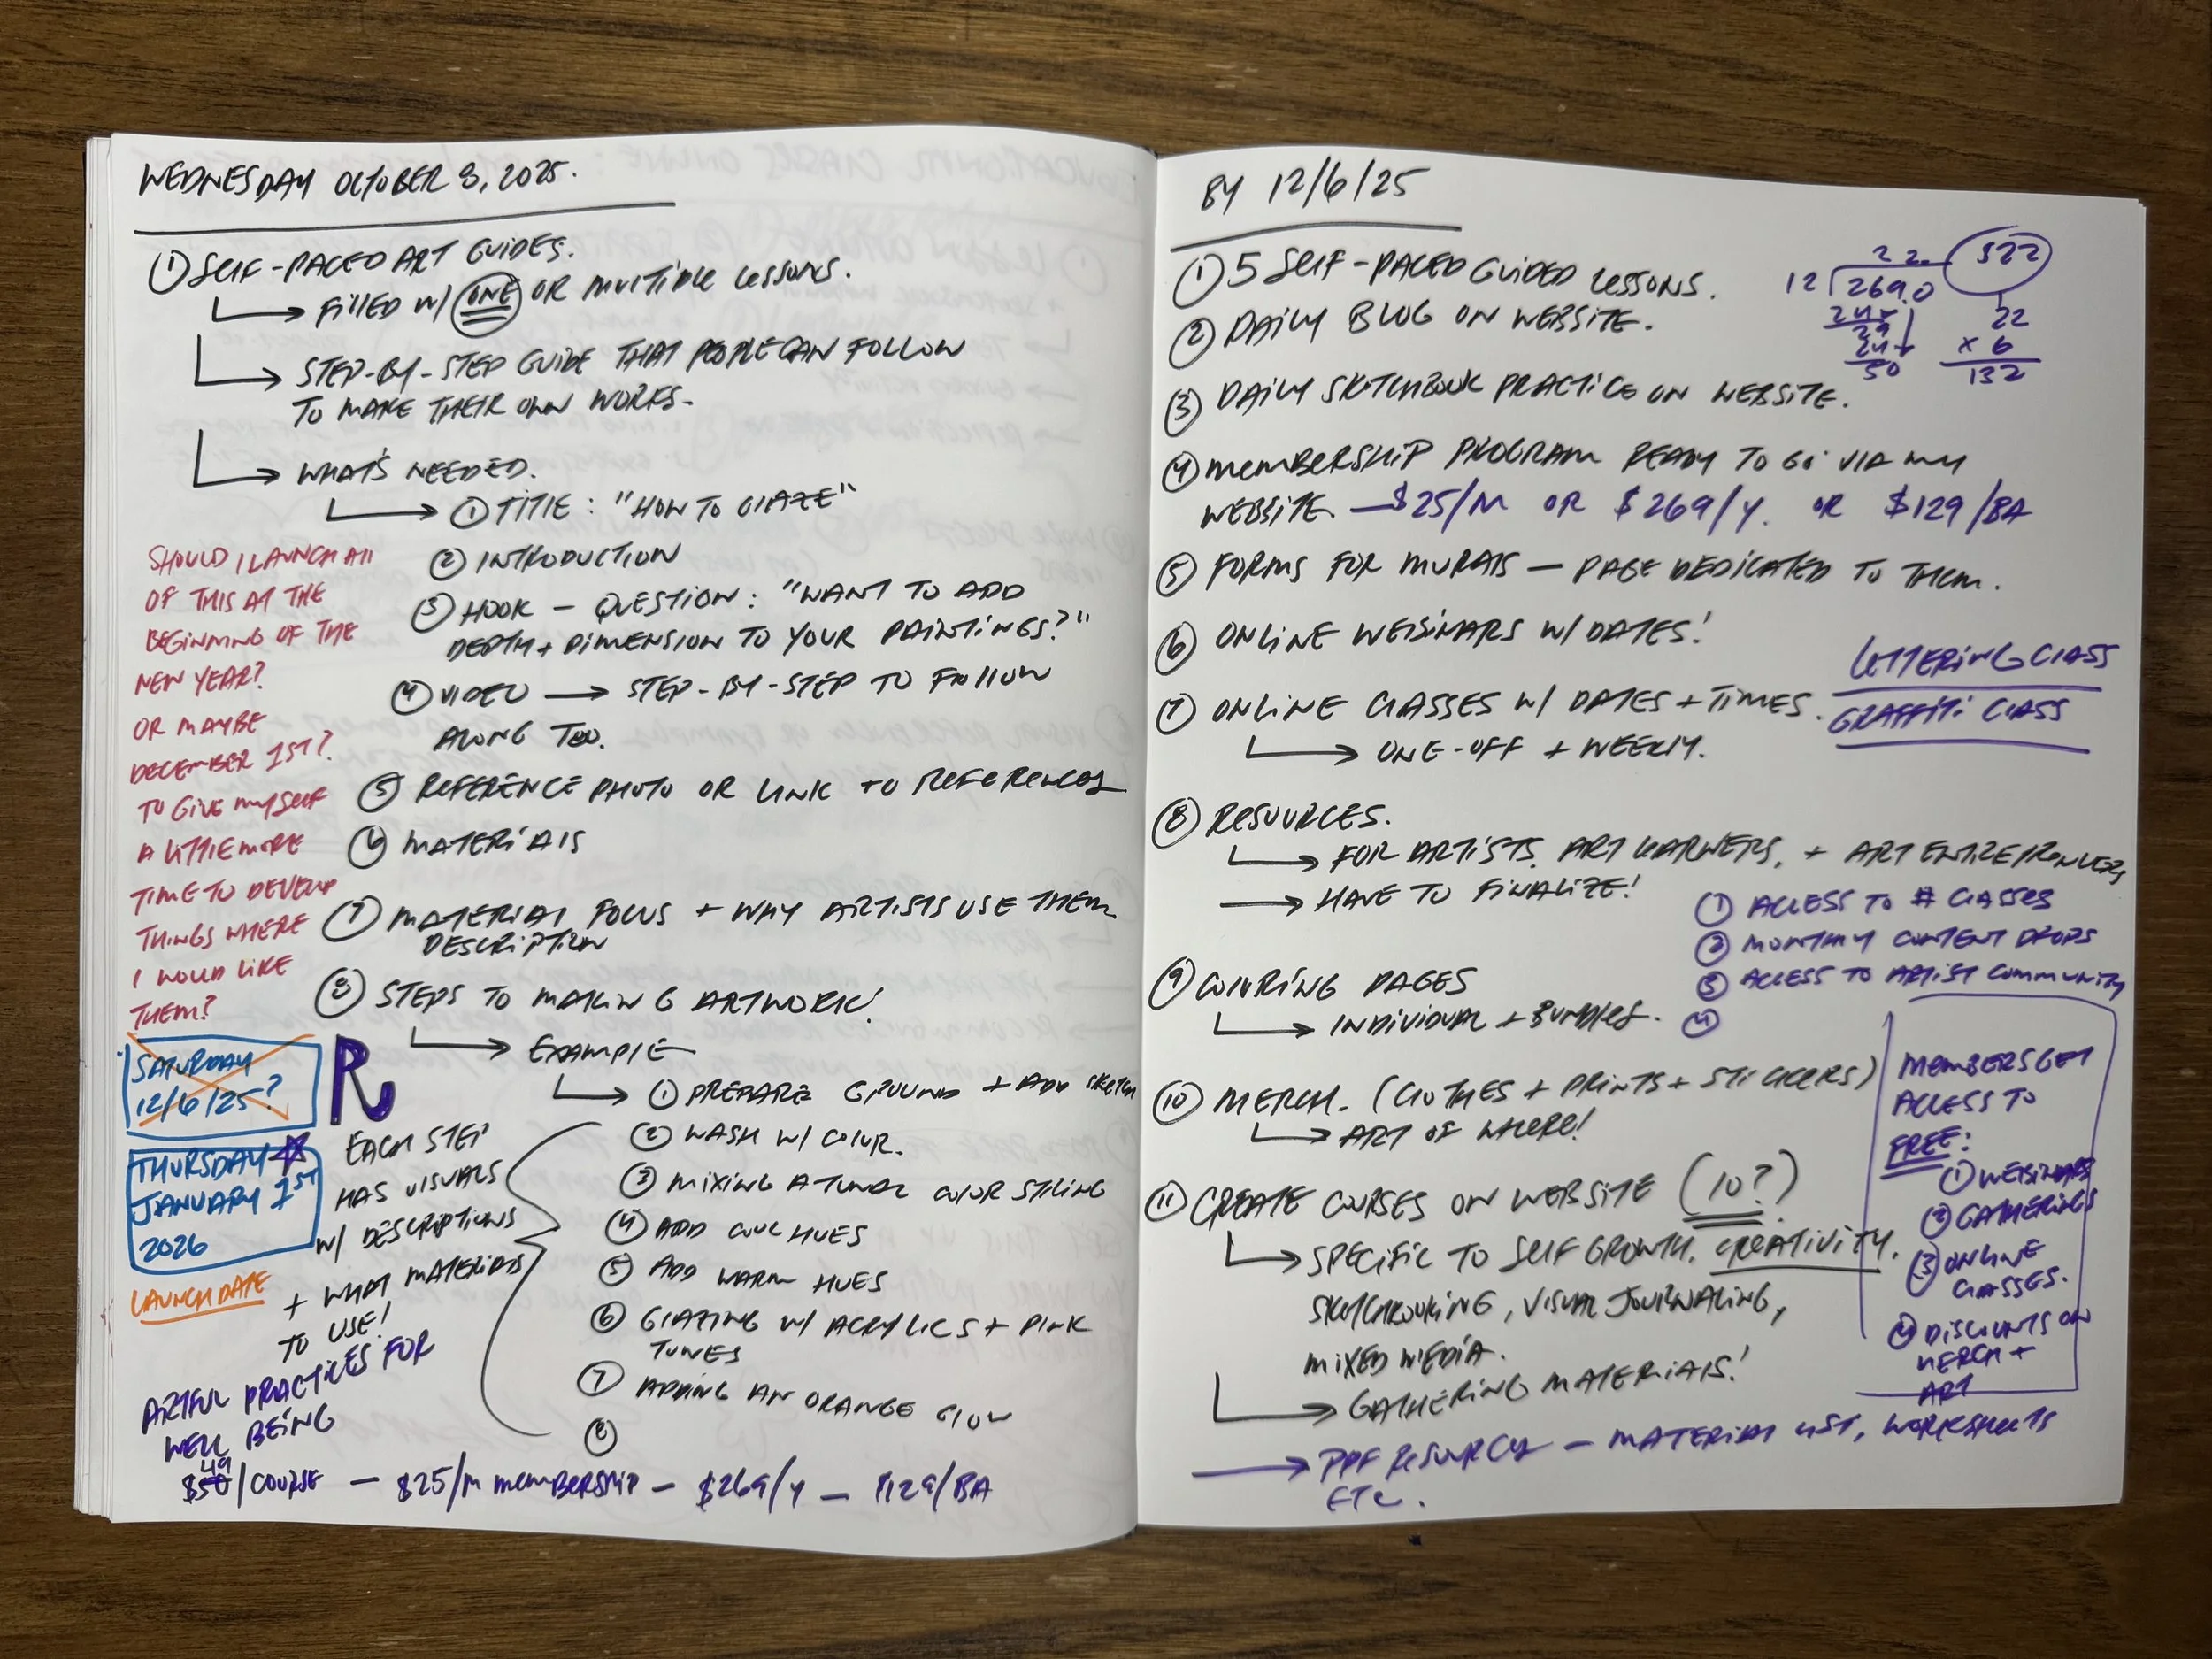 WEDNESDAY OCTOBER 8, 2025.
① SELF-PACED ART GUIDES.
→ FILLED W/ ONE OR MULTIPLE LESSONS.
→ STEP-BY-STEP GUIDE THAT PEOPLE CAN FOLLOW
TO MAKE THEIR OWN WORKS.
→ WHAT'S NEEDED.
→ ① TITLE: "HOW TO GLAZE"
② INTRODUCTION
③ HOOK — QUESTION: "WANT TO ADD
DEPTH + DIMENSION TO YOUR PAINTINGS?"
④ VIDEO → STEP-BY-STEP TO FOLLOW
ALONG TOO.
⑤ REFERENCE PHOTO OR LINK TO REFERENCES
⑥ MATERIALS
⑦ MATERIAL FOCUS + WHY ARTISTS USE THEM
DESCRIPTION
⑧ STEPS TO MAKING ARTWORK!
→ EXAMPLE
→ ① PREPARE GROUND + ADD SKETCH
② WASH W/ COLOR.
③ MIXING A TONAL COLOR STRING
④ ADD COOL HUES
⑤ ADD WARM HUES
⑥ GLAZING W/ ACRYLICS + PINK
TONES
⑦ ADDING AN ORANGE GLOW
⑧
SHOULD I LAUNCH ALL
OF THIS AT THE
BEGINNING OF THE
NEW YEAR?
OR MAYBE
DECEMBER 1ST?
TO GIVE MYSELF
A LITTLE MORE
TIME TO DEVELOP
THINGS WHERE
I WOULD LIKE
THEM?
SATURDAY
12/6/25?
THURSDAY
JANUARY 1ST
2026
LAUNCH DATE
R
EACH STEP
HAS VISUALS
W/ DESCRIPTIONS
+ WHAT MATERIALS
TO USE!
ARTFUL PRACTICES FOR
WELL BEING
49
$50/COURSE — $25/M MEMBERSHIP — $269/Y — $129/BA
BY 12/6/25
① 5 SELF-PACED GUIDED LESSONS.
② DAILY BLOG ON WEBSITE.
③ DAILY SKETCHBOOK PRACTICE ON WEBSITE.
④ MEMBERSHIP PROGRAM READY TO GO VIA MY
WEBSITE. — $25/M OR $269/Y. OR $129/BA
⑤ FORMS FOR MURALS — PAGE DEDICATED TO THEM.
⑥ ONLINE WEBINARS W/ DATES!
⑦ ONLINE CLASSES W/ DATES + TIMES.
→ ONE-OFF + WEEKLY.
LETTERING CLASS
GRAFFITI CLASS
⑧ RESOURCES.
→ FOR ARTISTS, ART LEARNERS, + ART ENTREPRENEUERS
→ HAVE TO FINALIZE!
⑨ COLORING PAGES
→ INDIVIDUAL + BUNDLES.
⑩ MERCH. (CLOTHES + PRINTS + STICKERS)
→ ART OF WHERE!
⑪ CREATE COURSES ON WEBSITE (10?)
→ SPECIFIC TO SELF GROWTH, CREATIVITY,
SKETCHBOOKING, VISUAL JOURNALING,
MIXED MEDIA.
→ GATHERING MATERIALS!
→ PDF RESOURCES — MATERIAL LIST, WORKSHEETS
ETC.
22. $22
12 269.0
24
29 22
24 × 6
50 132
① ACCESS TO # CLASSES
② MONTHLY CONTENT DROPS
③ ACCESS TO ARTIST COMMUNITY
④
MEMBERS GET
ACCESS TO
FREE:
① WEBINARS
② GATHERINGS
③ ONLINE
CLASSES.
④ DISCOUNTS ON
MERCH +
ART